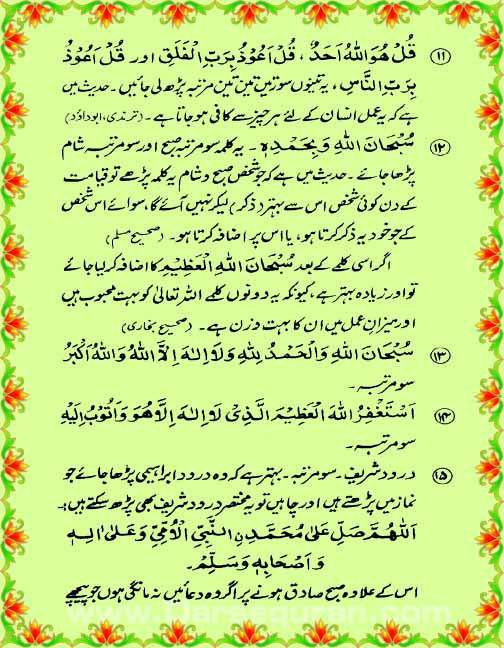 ⑪ قُلْ هُوَ اللهُ اَحَدٌ، قُلْ اَعُوْذُ بِرَبِّ الْفَلَقِ اور قُلْ اَعُوْذُ
بِرَبِّ النَّاسِ، یہ تینوں سورتیں تین تین مرتبہ پڑھ لی جائیں۔ حدیث میں
ہے کہ یہ عمل انسان کے لئے ہر چیز سے کافی ہو جاتا ہے۔ (ترمذی، ابوداؤد)
⑫ سُبْحَانَ اللهِ وَبِحَمْدِهٖ۔ یہ کلمہ سو مرتبہ صبح اور سو مرتبہ شام
پڑھا جائے۔ حدیث میں ہے کہ جو شخص صبح و شام یہ کلمہ پڑھے تو قیامت
کے دن کوئی شخص اس سے بہتر (ذکر) لیکر نہیں آئے گا، سوائے اس شخص
کے جو خود یہ ذکر کرتا ہو، یا اس پر اضافہ کرتا ہو۔ (صحیح مسلم)
اگر اسی کلمے کے بعد سُبْحَانَ اللهِ الْعَظِيْمِ کا اضافہ کر لیا جائے
تو اور زیادہ بہتر ہے، کیونکہ یہ دونوں کلمے اللہ تعالیٰ کو بہت محبوب ہیں
اور میزانِ عمل میں ان کا بہت وزن ہے۔ (صحیح بخاری)
⑬ سُبْحَانَ اللهِ وَالْحَمْدُ لِلّٰهِ وَلَا اِلٰهَ اِلَّا اللهُ وَاللهُ اَكْبَرُ
سو مرتبہ۔
⑭ اَسْتَغْفِرُ اللهَ الْعَظِيْمَ الَّذِىْ لَا اِلٰهَ اِلَّا هُوَ وَاَتُوْبُ اِلَيْهِ
سو مرتبہ۔
⑮ درود شریف۔ سو مرتبہ۔ بہتر ہے کہ وہ درود ابراہیمی پڑھا جائے جو
نماز میں پڑھتے ہیں اور چاہیں تو یہ مختصر درود شریف بھی پڑھ سکتے ہیں:۔
اَللّٰهُمَّ صَلِّ عَلٰى مُحَمَّدِ نِ النَّبِيِّ الْاُمِّيِّ وَعَلٰى اٰلِهٖ
وَاَصْحَابِهٖ وَسَلِّمْ۔
اس کے علاوہ صبح صادق ہونے پر اگر وہ دعائیں نہ مانگی ہوں جو پیچھے
www.Darsequran.com